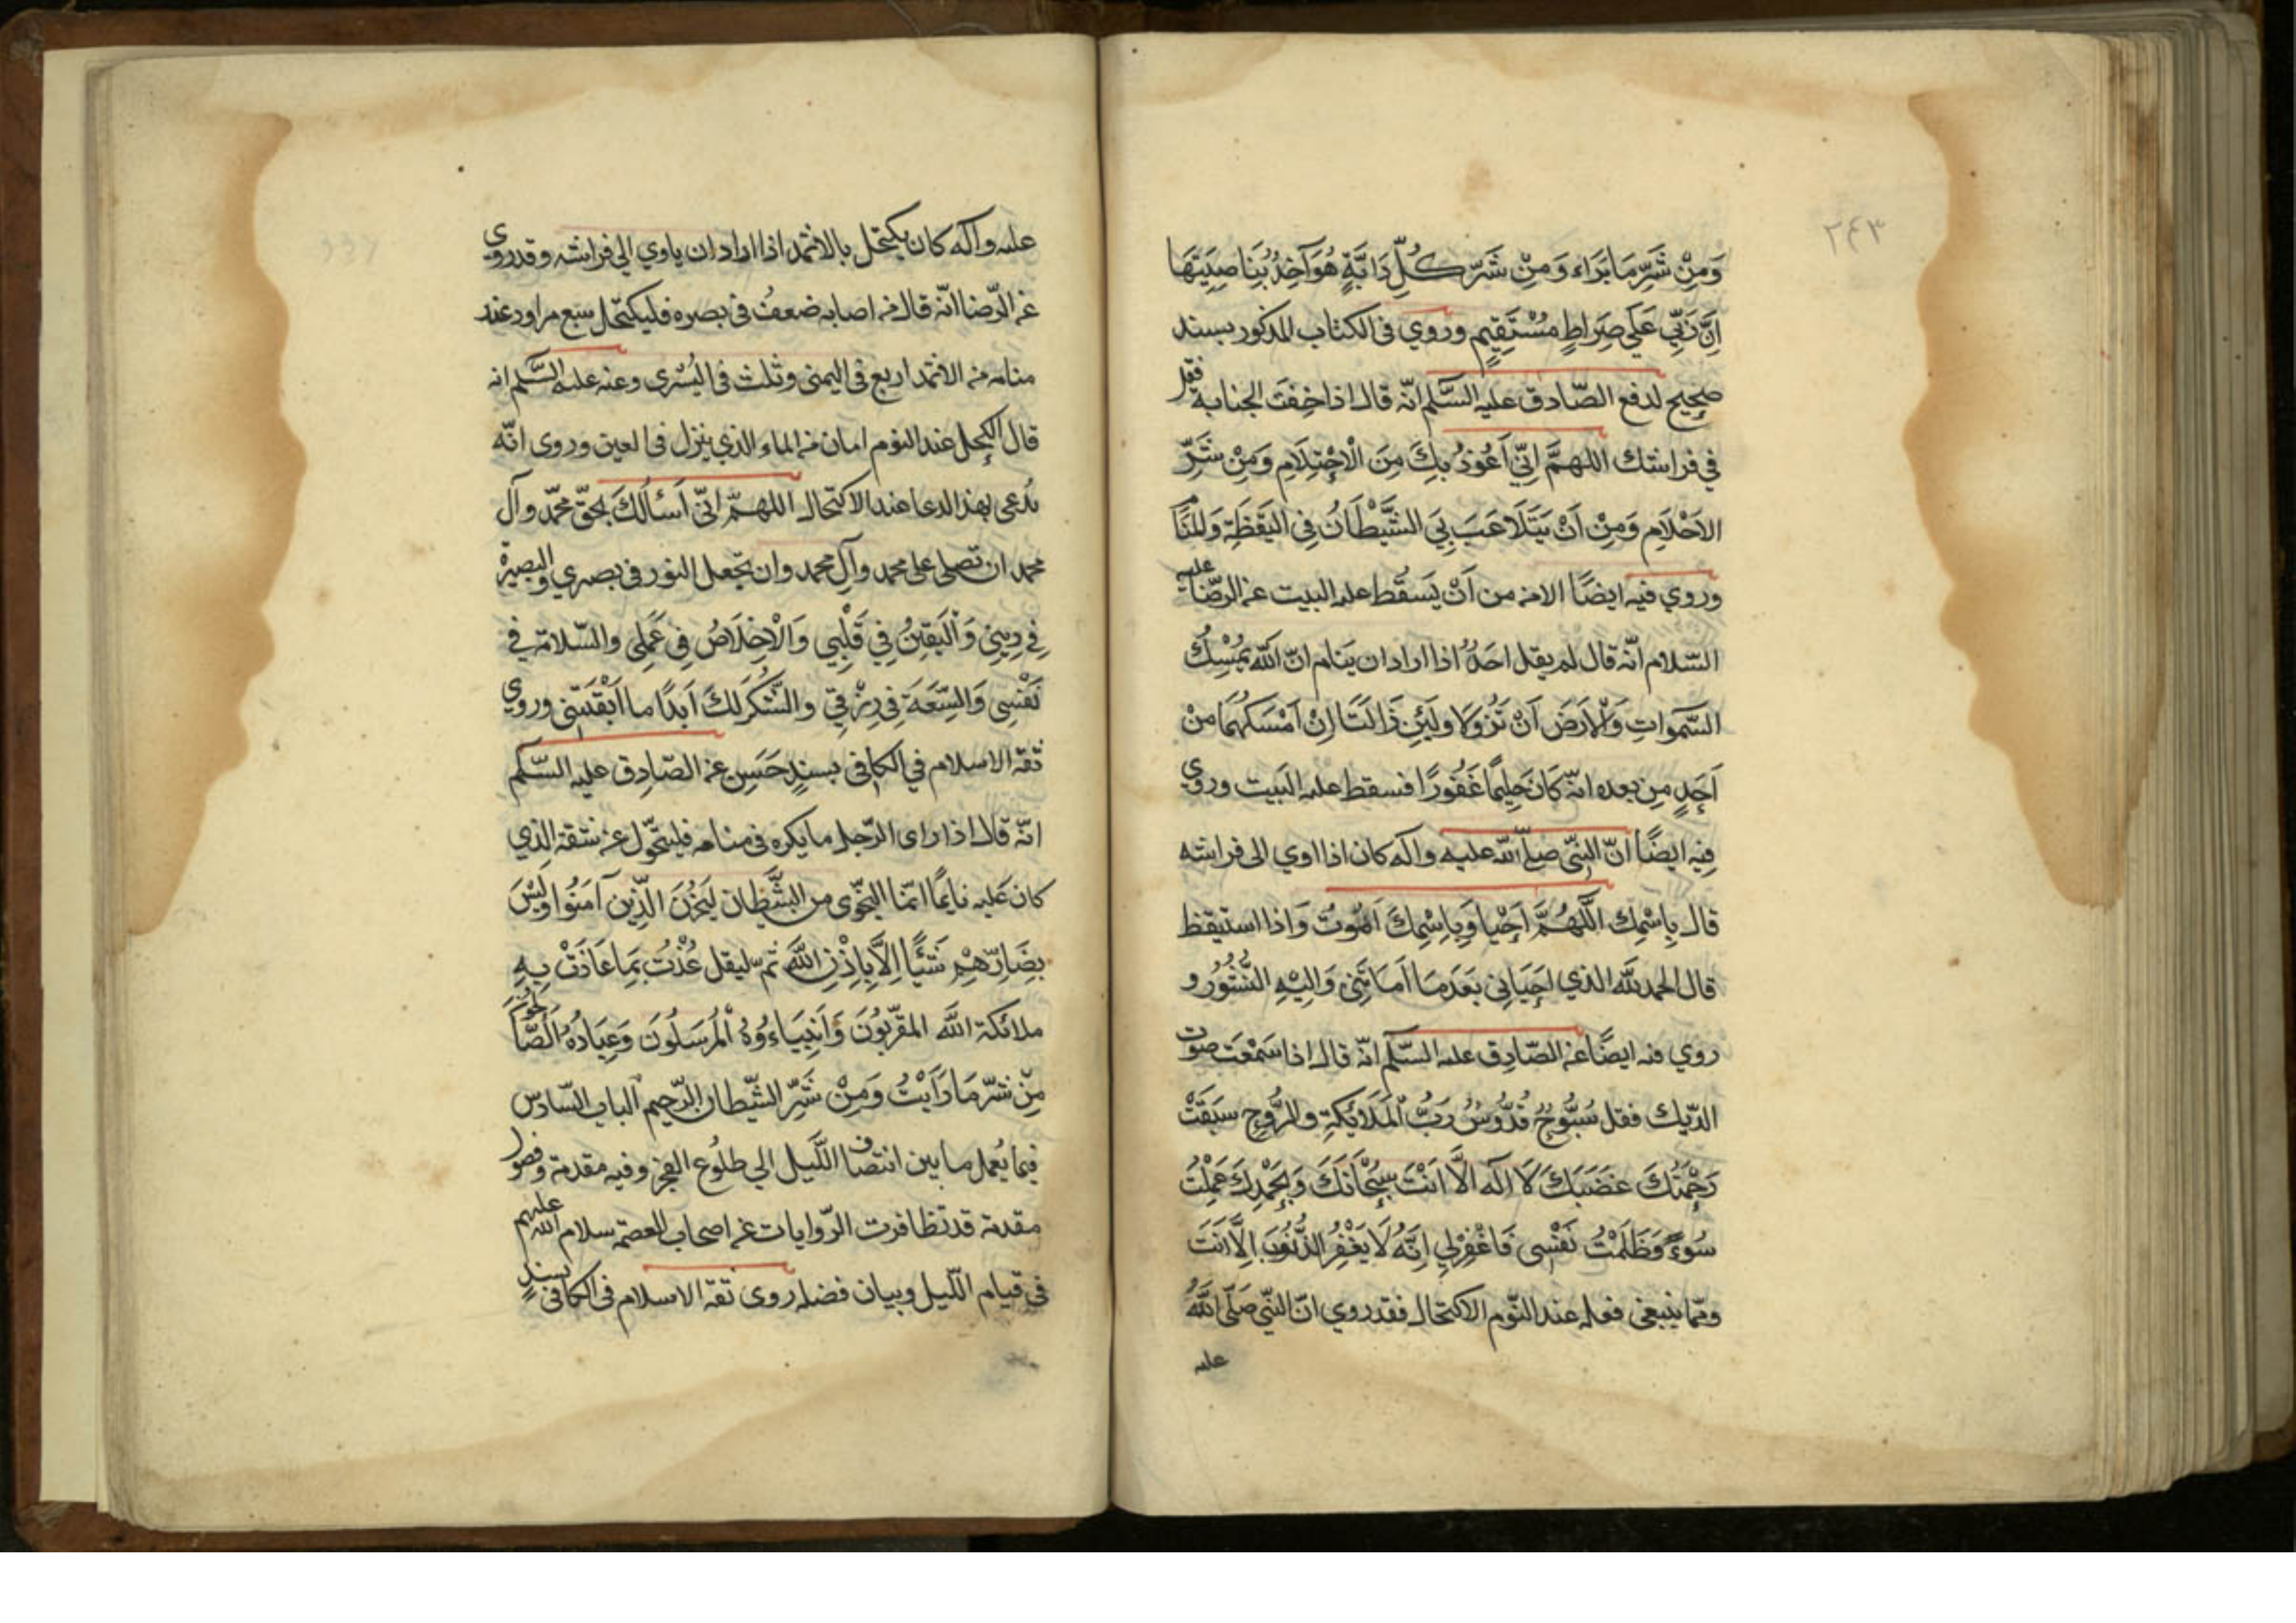 ٢٤٣
وَمِنْ شَرِّ مَا بَرَاء وَمِنْ شَرِّ كُلِّ دَابَّةٍ هُوَ آخِذُ بِنَاصِيَتِهَا
اِنَّ رَبِّي عَلَى صِرَاطٍ مُسْتَقِيمٍ وروي فى الكتاب المذكور بسند
صحيح لدفع الصّادق عليه السَّلم انّه قال اذا خِفتَ الجنابة فقل
في فراشك اللهمَّ اِنِّي اَعُوذُ بِكَ مِنَ الْاِحْتِلَامِ وَمِنْ شَرِّ
الاَحْلَامِ وَمِنْ اَنْ يَتَلَاعَبَ بِيَ الشَّيْطَانُ فِي اليَقَظَةِ وَالمَنَامِ
وروي فيه ايضًا الامن من اَنْ يَسقُط عليه البيت عن الرضّا عليه
السّلام انّه قال لم يقل احَدٌ اذا اراد ان ينام انّ اللّه يُمْسِكُ
السَّموات وَالْاَرضَ اَنْ تَزُولَا ولَئِن زَالَتَا اِنْ اَمْسَكَهُمَا مِنْ
اَحَدٍ مِن بعده انّه كَانَ حَلِيمًا غَفُورًا فسقط عليه البيت وروي
فِيه ايضًا انّ النبّى صلّى اللّه عليه واله كان اذا اوي الى فراشه
قال بِاسْمِكَ اللَّهُمَّ اَحْيا وَبِاسْمِكَ اَمُوتُ وَاذا استيقظ
قال الحمد للّه الذي اَحيَانِى بَعْدَمَا اَمَاتَنِى وَاِلَيْهِ النُّشُورُ و
روي فيه ايضًا عن الصّادق عليه السّلم انّه قال اذا سَمْعَت صوت
الدّيك فقل سُبُّوحٌ قُدُّوسٌ رَبُّ الْمَلَائِكَةِ والرُّوحِ سبَقَتْ
رَحْمَتُكَ غَضَبَكَ لَا اله الَّا اَنْتَ سُبْحَانَكَ وَبِحَمْدِكَ عَمِلْتُ
سُوءً وَظَلَمْتُ نَفْسِى فَاغْفِرْلِي اِنَّهُ لَا يَغْفِرُ الذُّنُوبَ اِلَّا اَنْتَ
وممّا ينبغى فعله عند النّوم الاكتحال فقد روي انّ النبّي صَلَّى اللَّهُ
عليه
عليه واله كان يكتحل بالاثمد اذا اراد ان ياوي الى فراشه وقد روي
عن الرّضا انّه قال من اصابه ضعفٌ فى بصره فليكتحّل سبع مراود عند
منامه من الاثمد اربع فى اليمنى وثلث فى اليُسْرى وعنه عليه السَّلم انه
قال الكحل عند النوم امان من الماء الذي ينزل فى العين وروى انّه
يُدعى بهذ الدعا عند الاكتحال اللهمّ انّى اَسئالُكَ بحقّ محمّد وآل
محمد ان تصلى على محمد وآلِ محمد وان تجعل النور فى بصري والبصيرة
فِي دِينِي وَالْيَقِينُ فِي قَلْبِي وَالْاِخْلَاصُ فِي عَمَلِى والسّلامة في
نَفْسِى وَالسِّعَةَ فِي رِزْقِي والشُّكرَ لَكَ اَبَدًا ما اَبْقَيتَنِى وروي
ثقة الاسلام في الكافى بسندٍ حَسَنٍ عن الصّادِق عليه السّلم
انّه قال اذا راى الرّجل ما يكره فى منامه فليتحّول عن شقة الذي
كان عَليه نايمًا انّمَا النجّوى من الشَّيطان لِيَحْزُنَ الَّذِينَ آمَنُوا وَلَيْسَ
بِضَارِّهِمْ شَيْئًا اِلَّا بِاِذْنِ اللّه ثم ليقل عُذْتُ بِمَا عَاذَتْ بِهِ
ملائكة اللّه المقرّبُونَ وَاَنبِيَاءوُهُ الْمُرسَلُونَ وَعِبَادُهُ الصّالحون
مِنْ شَرِّ مَا رَاَيْتُ وَمِنْ شَرِّ الشّيطان الرّجيم الباب السّادس
فيما يُعمل ما بين انتصاف اللّيل الى طلُوع الفجر وفيه مقدمة وفصول
مقدمة قد تظافرت الرّوايات عن اصحاب العصمة سلام اللّه عليهم
فى قيام اللّيل وبيان فضله روى ثقة الاسلام فى الكافى بسندٍ